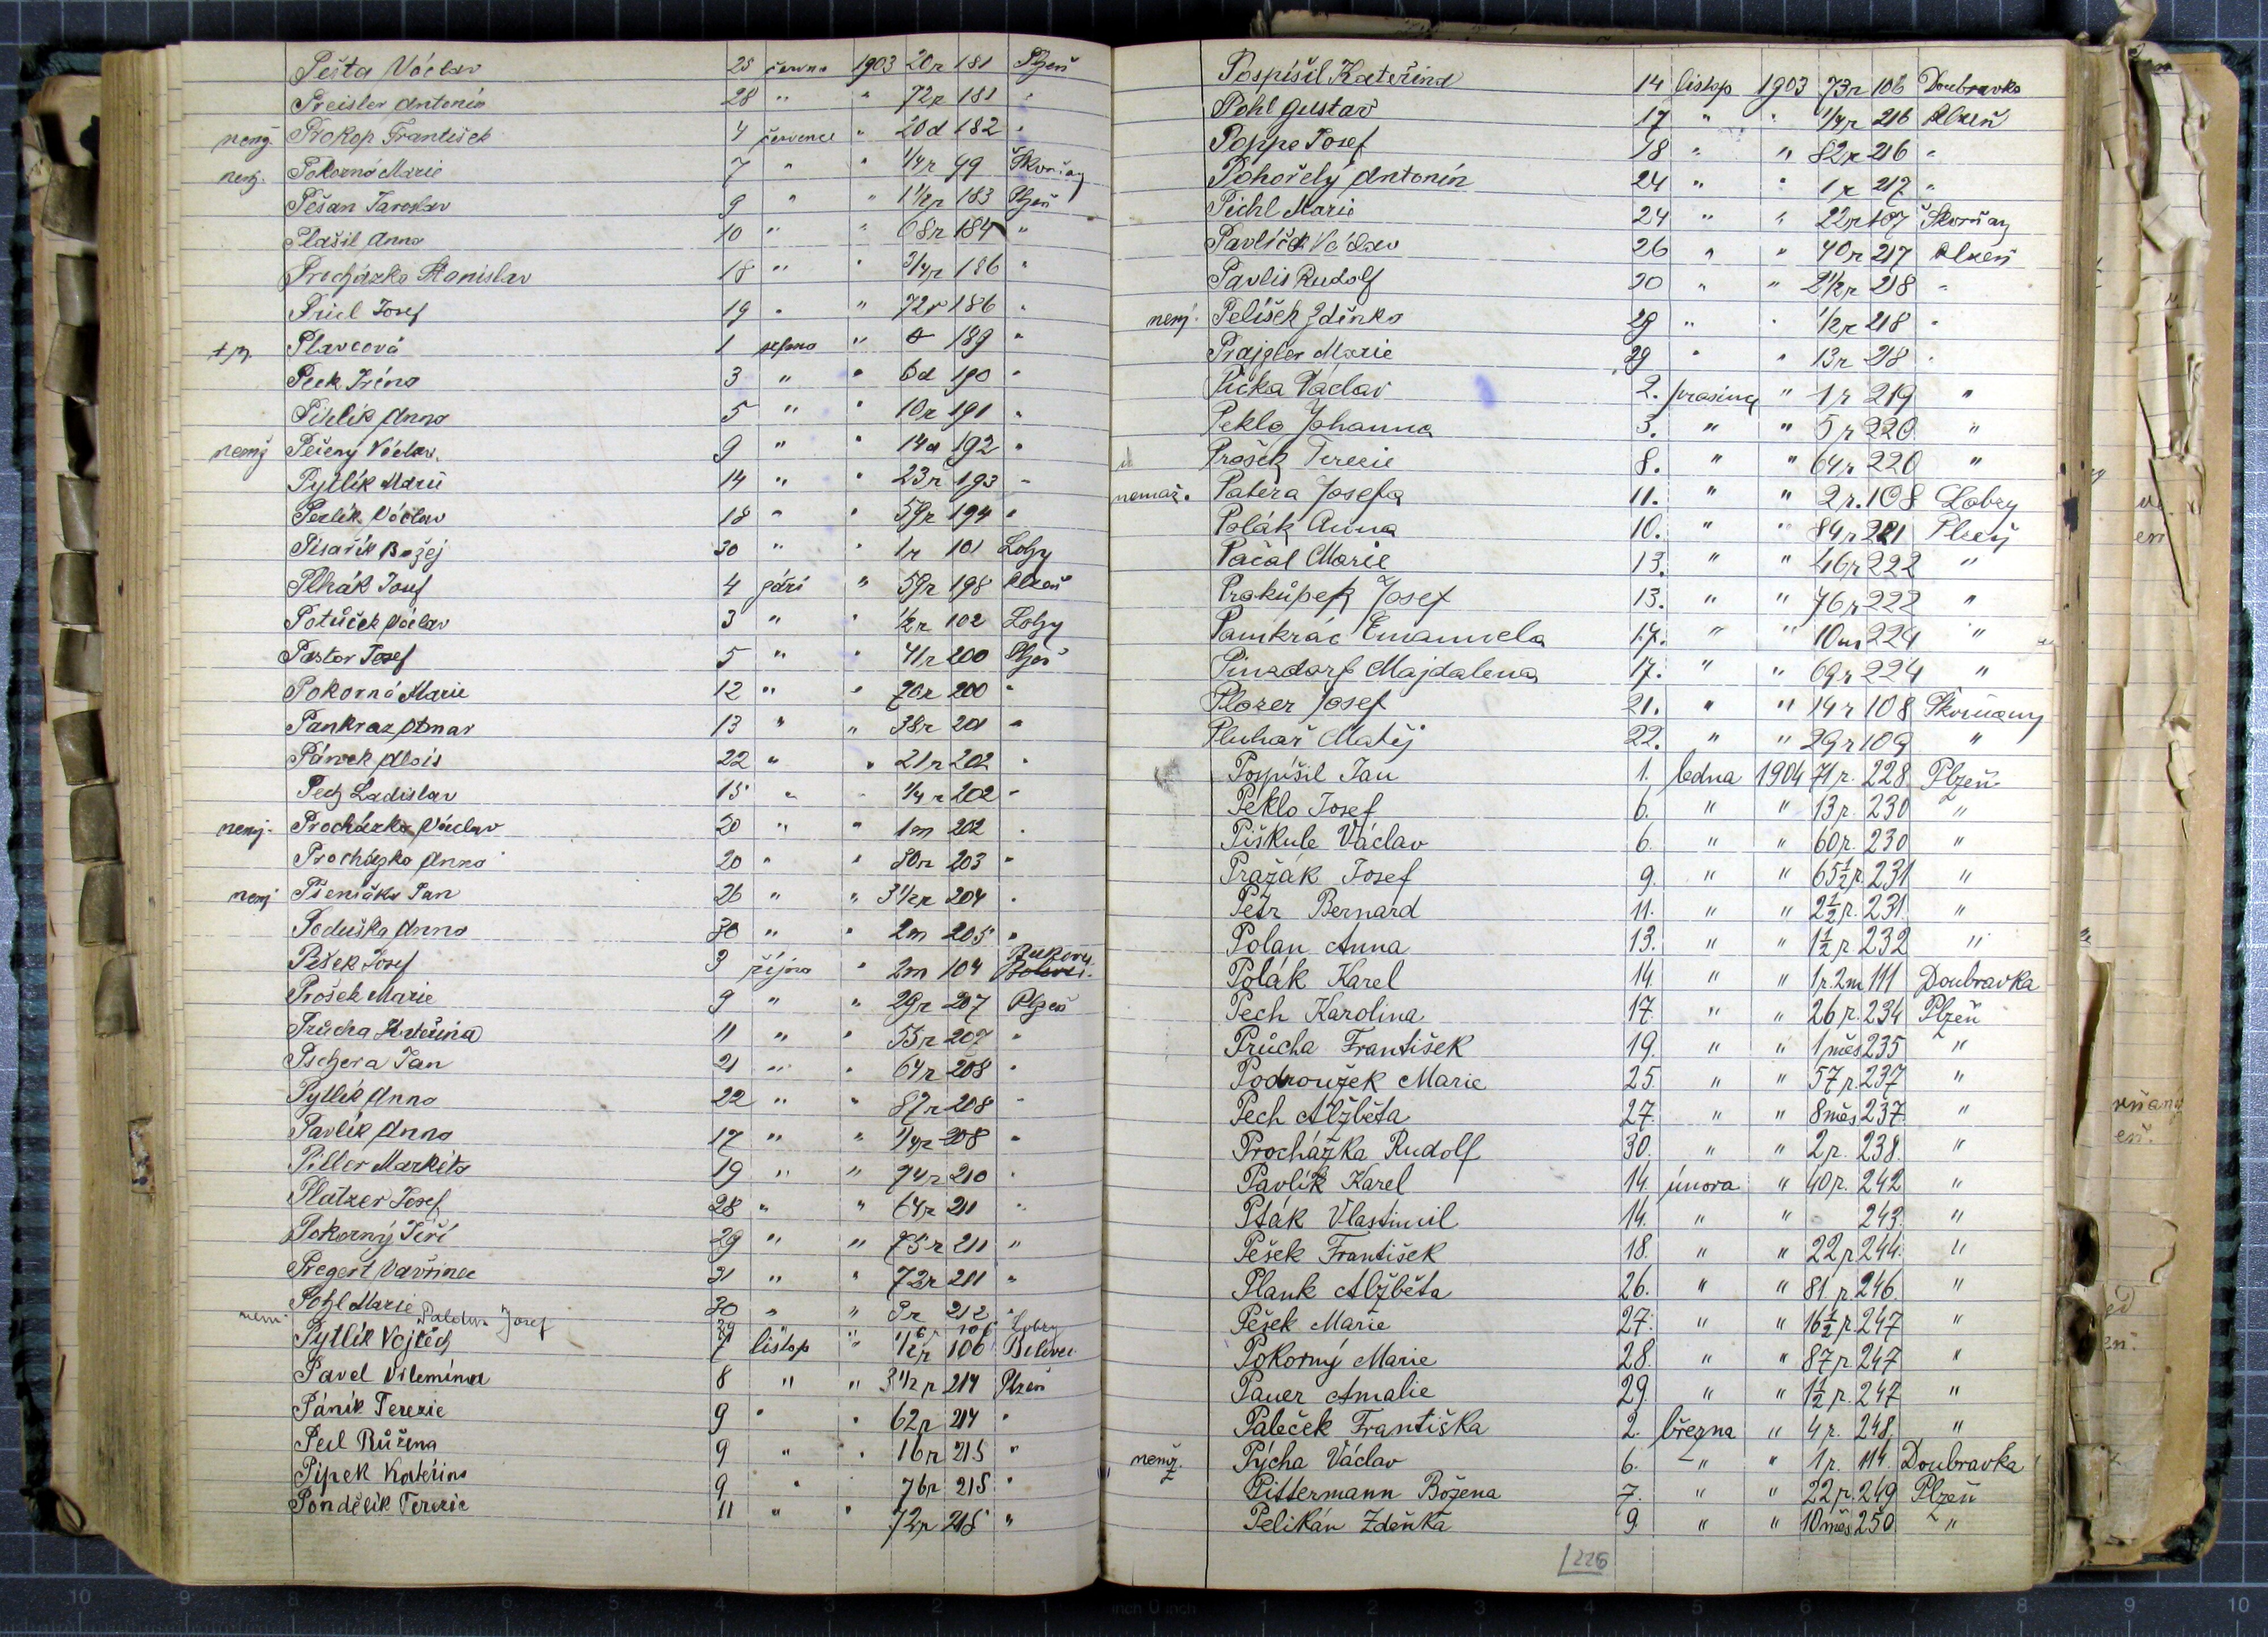 Pešta Václav 25 června 1903 20r 181 Plzeň
Preisler Antonín 28 " " 72r 181 "
nemj. Prokop František 4 července " 20d 182 "
nemj. Pokorná Marie 7 " " 1/4r 99 Škvrňany
Pešan Jaroslav 9 " " 1 1/2r 183 Plzeň
Plašil Anna 10 " " 68r 184 "
Procházka Stanislav 18 " " 3/4r 186 "
Josef 19 " " 72r 186 "
Plavcová 1 srpna " 189 "
Peek Iréna 3 " " 6d 190 "
Pihlík Anna 5 " " 10r 191 "
nemj Pečený Václav 9 " " 14d 192 "
Pytlík Marii 14 " " 23r 193 "
Perlík Václav 18 " " 59r 194 "
Pisařík 30 " " 1r 101 Lobzy
Plhák Josef 4 září " 59r 198 Plzeň
Potůček Václav 3 " " 1/2r 102 Lobzy
Pastor Josef 5 " " 41r 200 Plzeň
Pokorná Marie 12 " " 70r 200 "
Pankraz Otmar 13 " " 38r 201 "
Pánek Alois 22 " " 21r 202 "
Pech Ladislav 15 " " 1/4r 202 "
nemj. Procházka Václav 20 " " 1m 202 "
Procházka Anna 20 " " 80r 203 "
nemj Pšenička Jan 26 " " 3 1/2r 204 "
Poduška Anna 30 " " 2m 205 "
Pešek Josef 3 října " 2m 104 Bukovec
Prošek Marie 9 " " 29r 207 Plzeň
Průcha Kateřina 11 " " 55r 207 "
Pschera Jan 21 " " 64r 208 "
Pytlík Anna 22 " " 87r 208 "
Pavlík Anna 17 " " 1/4r 208 "
Piller Markéta 19 " " 74r 210 "
Platzer Josef 28 " " 64r 211 "
Pokorný Jiří 29 " " 75r 211 "
Pregert Vavřinec 31 " " 72r 211 "
Pohl Marie 30 " " 9r 212 "
nem. Josef 29 " " 106 Lobzy
Pytlík Vojtěch 7 listop " 1/2r 106
Pavel Vilemína 8 " " 3 1/2r 214 Plzeň
Páník Terezie 9 " " 62r 214 "
Pecl Růžena 9 " " 16r 215 "
Pípek Kateřina 9 " " 76r 215 "
Pondělík Terezie 11 " " 72r 215 "
Pospíšil Kateřina 14 listop 1903 73r 106 Doubravka
Pohl Gustav 17 " " 1/4r 216 Plzeň
Poppe Josef 18 " " 82r 216 "
Pohořelý Antonín 24 " " 1r 217 "
Pichl Marie 24 " " 22r 107 Škvrňany
Pavlíček Václav 26 " " 40r 217 Plzeň
Pavlis Rudolf 20 " " 2 1/2r 218 "
nemj. Pelíšek Zdeňka 29 " " 1/2r 218 "
Prajgler Marie 29 " " 13r 218 "
Pička Václav 2. prosince " 1r 219 "
Peklo Johanna 3. " " 5r 220 "
Prošek Terezie 8. " " 64r 220 "
nemaj. Patera Josefa 11. " " 2r. 108 Lobzy
Polák Anna 10. " " 84r 221 Plzeň
Pačal Marie 13. " " 46r 222 "
Prokůpek Josef 13. " " 76r 222 "
Pamkrác Emanuela 17. " " 10m 224 "
Pinsdorf Majdalena 17. " " 69r 224 "
Plozer Josef 21. " " 14r 108 Škvrňany
Pluhař Matěj 22. " " 29r 109 "
Pospíšil Jan 1. ledna 1904 71r. 228 Plzeň
Peklo Josef 6. " " 13r. 230 "
Piškule Václav 6. " " 60r. 230 "
Pražák Josef 9. " " 65 1/2r. 231 "
Petr Bernard 11. " " 2 1/2r. 231 "
Polan Anna 13. " " 1 1/2r. 232 "
Polák Karel 14. " " 1r. 2m 111 Doubravka
Pech Karolina 17. " " 26r. 234 Plzeň
Průcha František 19. " " 1 měs 235 "
Podroužek Marie 25. " " 57r. 237 "
Pech Alžběta 27. " " 8 měs 237 "
Procházka Rudolf 30. " " 2r. 238 "
Pavlík Karel 14. února " 40r. 242 "
Pták Vlastimil 14. " " 243 "
Pešek František 18. " " 22r 244 "
Plank Alžběta 26. " " 81r. 246 "
Pešek Marie 27. " " 16 1/2r. 247 "
Pokorný Marie 28. " " 87r. 247 "
Pauer Amalie 29. " " 1 1/2r. 247 "
Paleček Františka 2. března " 4r. 248 "
nemoj. Pýcha Václav 6. " " 1r. 114 Doubravka
Pittermann Božena 7. " " 22r. 249 Plzeň
Pelikán Zdeňka 9. " " 10 měs 250 "
226
10 9 8 7 6 5 4 3 2 1 inch 0 inch 1 2 3 4 5 6 7 8 9 10